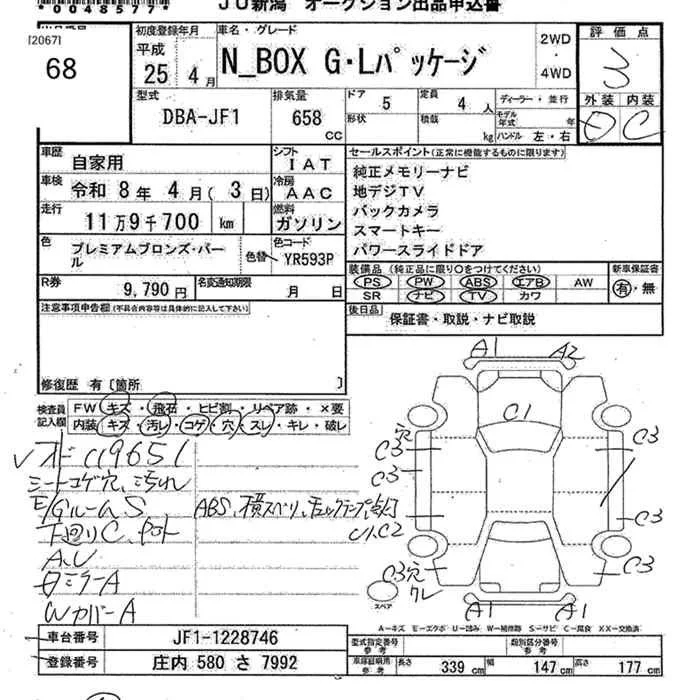 *00485577*
JU新潟 オークション出品申込書
[2067]
68
初度登録年月
平成
25年 4月
車名・グレード
N_BOX G・Lパッケージ
2WD
・
4WD
評価点
3
外装 内装
D C
型式
DBA-JF1
排気量
658
cc
ドア 5
定員 4人
形状
積載 kg
ディーラー・並行
モデル年式 年
ハンドル 左・右
車歴 自家用
シフト IAT
車検 令和 8年 4月( 3日)
冷房 AAC
走行 11万9千700 km
燃料 ガソリン
色 プレミアムブロンズ・パール
色替
色コード YR593P
R券 9,790円
名変通知期限 月 日
セールスポイント(正常に機能するものに限ります)
純正メモリーナビ
地デジTV
バックカメラ
スマートキー
パワースライドドア
装備品(純正品に限り○をつけてください)
PS PW ABS エアB AW
SR ナビ TV カワ
新車保証書
有・無
後日品 保証書・取説・ナビ取説
注意事項申告欄(不具合内容等は具体的に記入して下さい)
修復歴 有〔箇所 〕
検査員記入欄
FW キズ・飛石・ヒビ割・リペア跡・×要
内装 キズ・汚れ・コゲ・穴・スレ・キレ・破レ
シートコゲ穴、汚れ
E/Gルーム S
ABS、横スベリ、チェックランプ点灯
下回りC、
A.U
Wカバー A
A1 A2
C1
穴
C3
C3
C3
C3
C1.C2
C3穴
クレ
C3
スペア
A1 A1
A-キズ E-エクボ U-凹み W-補修跡 S-サビ C-腐食 XX-交換済
車台番号 JF1-1228746
登録番号 庄内 580 さ 7992
型式指定番号
参考
類別区分番号
参考
車庫証明用
参考
長さ 339cm
幅 147cm
高さ 177cm